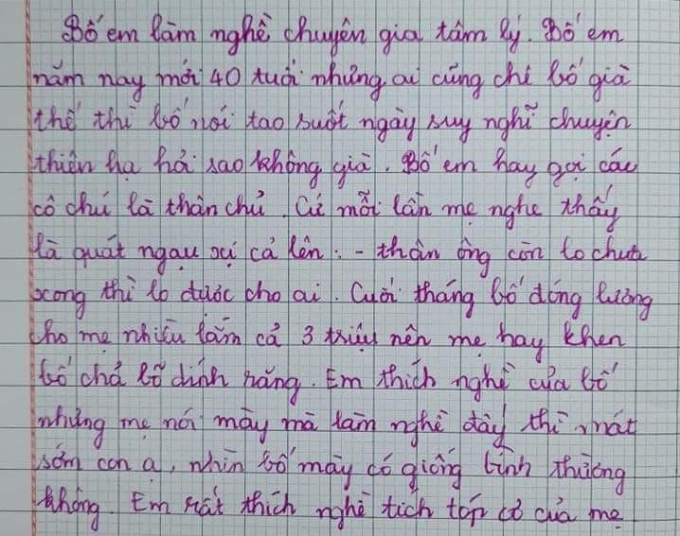 Bố em làm nghề chuyên gia tâm lý. Bố em
năm nay mới 40 tuổi nhưng ai cũng chê bố già
thế thì bố nói tao suốt ngày suy nghĩ chuyện
thiên hạ hỏi sao không già. Bố em hay gọi các
cô chú là thân chủ. Cứ mỗi lần mẹ nghe thấy
là quát ngậu xị cả lên: - thân ông còn lo chưa
xong thì lo được cho ai. Cuối tháng bố đóng lương
cho mẹ nhiều lắm cả 3 triệu nên mẹ hay khen
bố chả bõ dính răng. Em thích nghề của bố
nhưng mẹ nói mày mà làm nghề đấy thì mát
sớm con ạ, nhìn bố mày có giống bình thường
không. Em rất thích nghề tích tóp cơ của mẹ